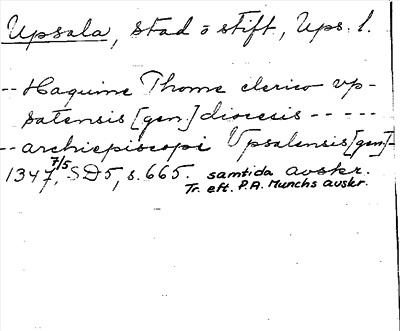 Upsala, stad o stift, Ups. l.
-- Haquino Thome clerico vp-
salensis [gen.] diocesis - - - - -
-- archiepiscopi Vpsalensis [gen.] -
1347 7/5, SD5, s. 665. samtida avskr.
Tr. eft. P.A. Munchs avskr.